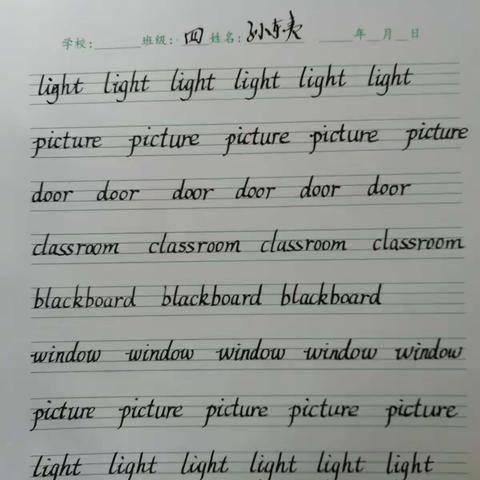 学校: 班级: 四 姓名: 孙东 年 月 日
light light light light light light
picture picture picture picture picture
door door door door door door
classroom classroom classroom classroom
blackboard blackboard blackboard
window window window window window
picture picture picture picture picture
light light light light light light